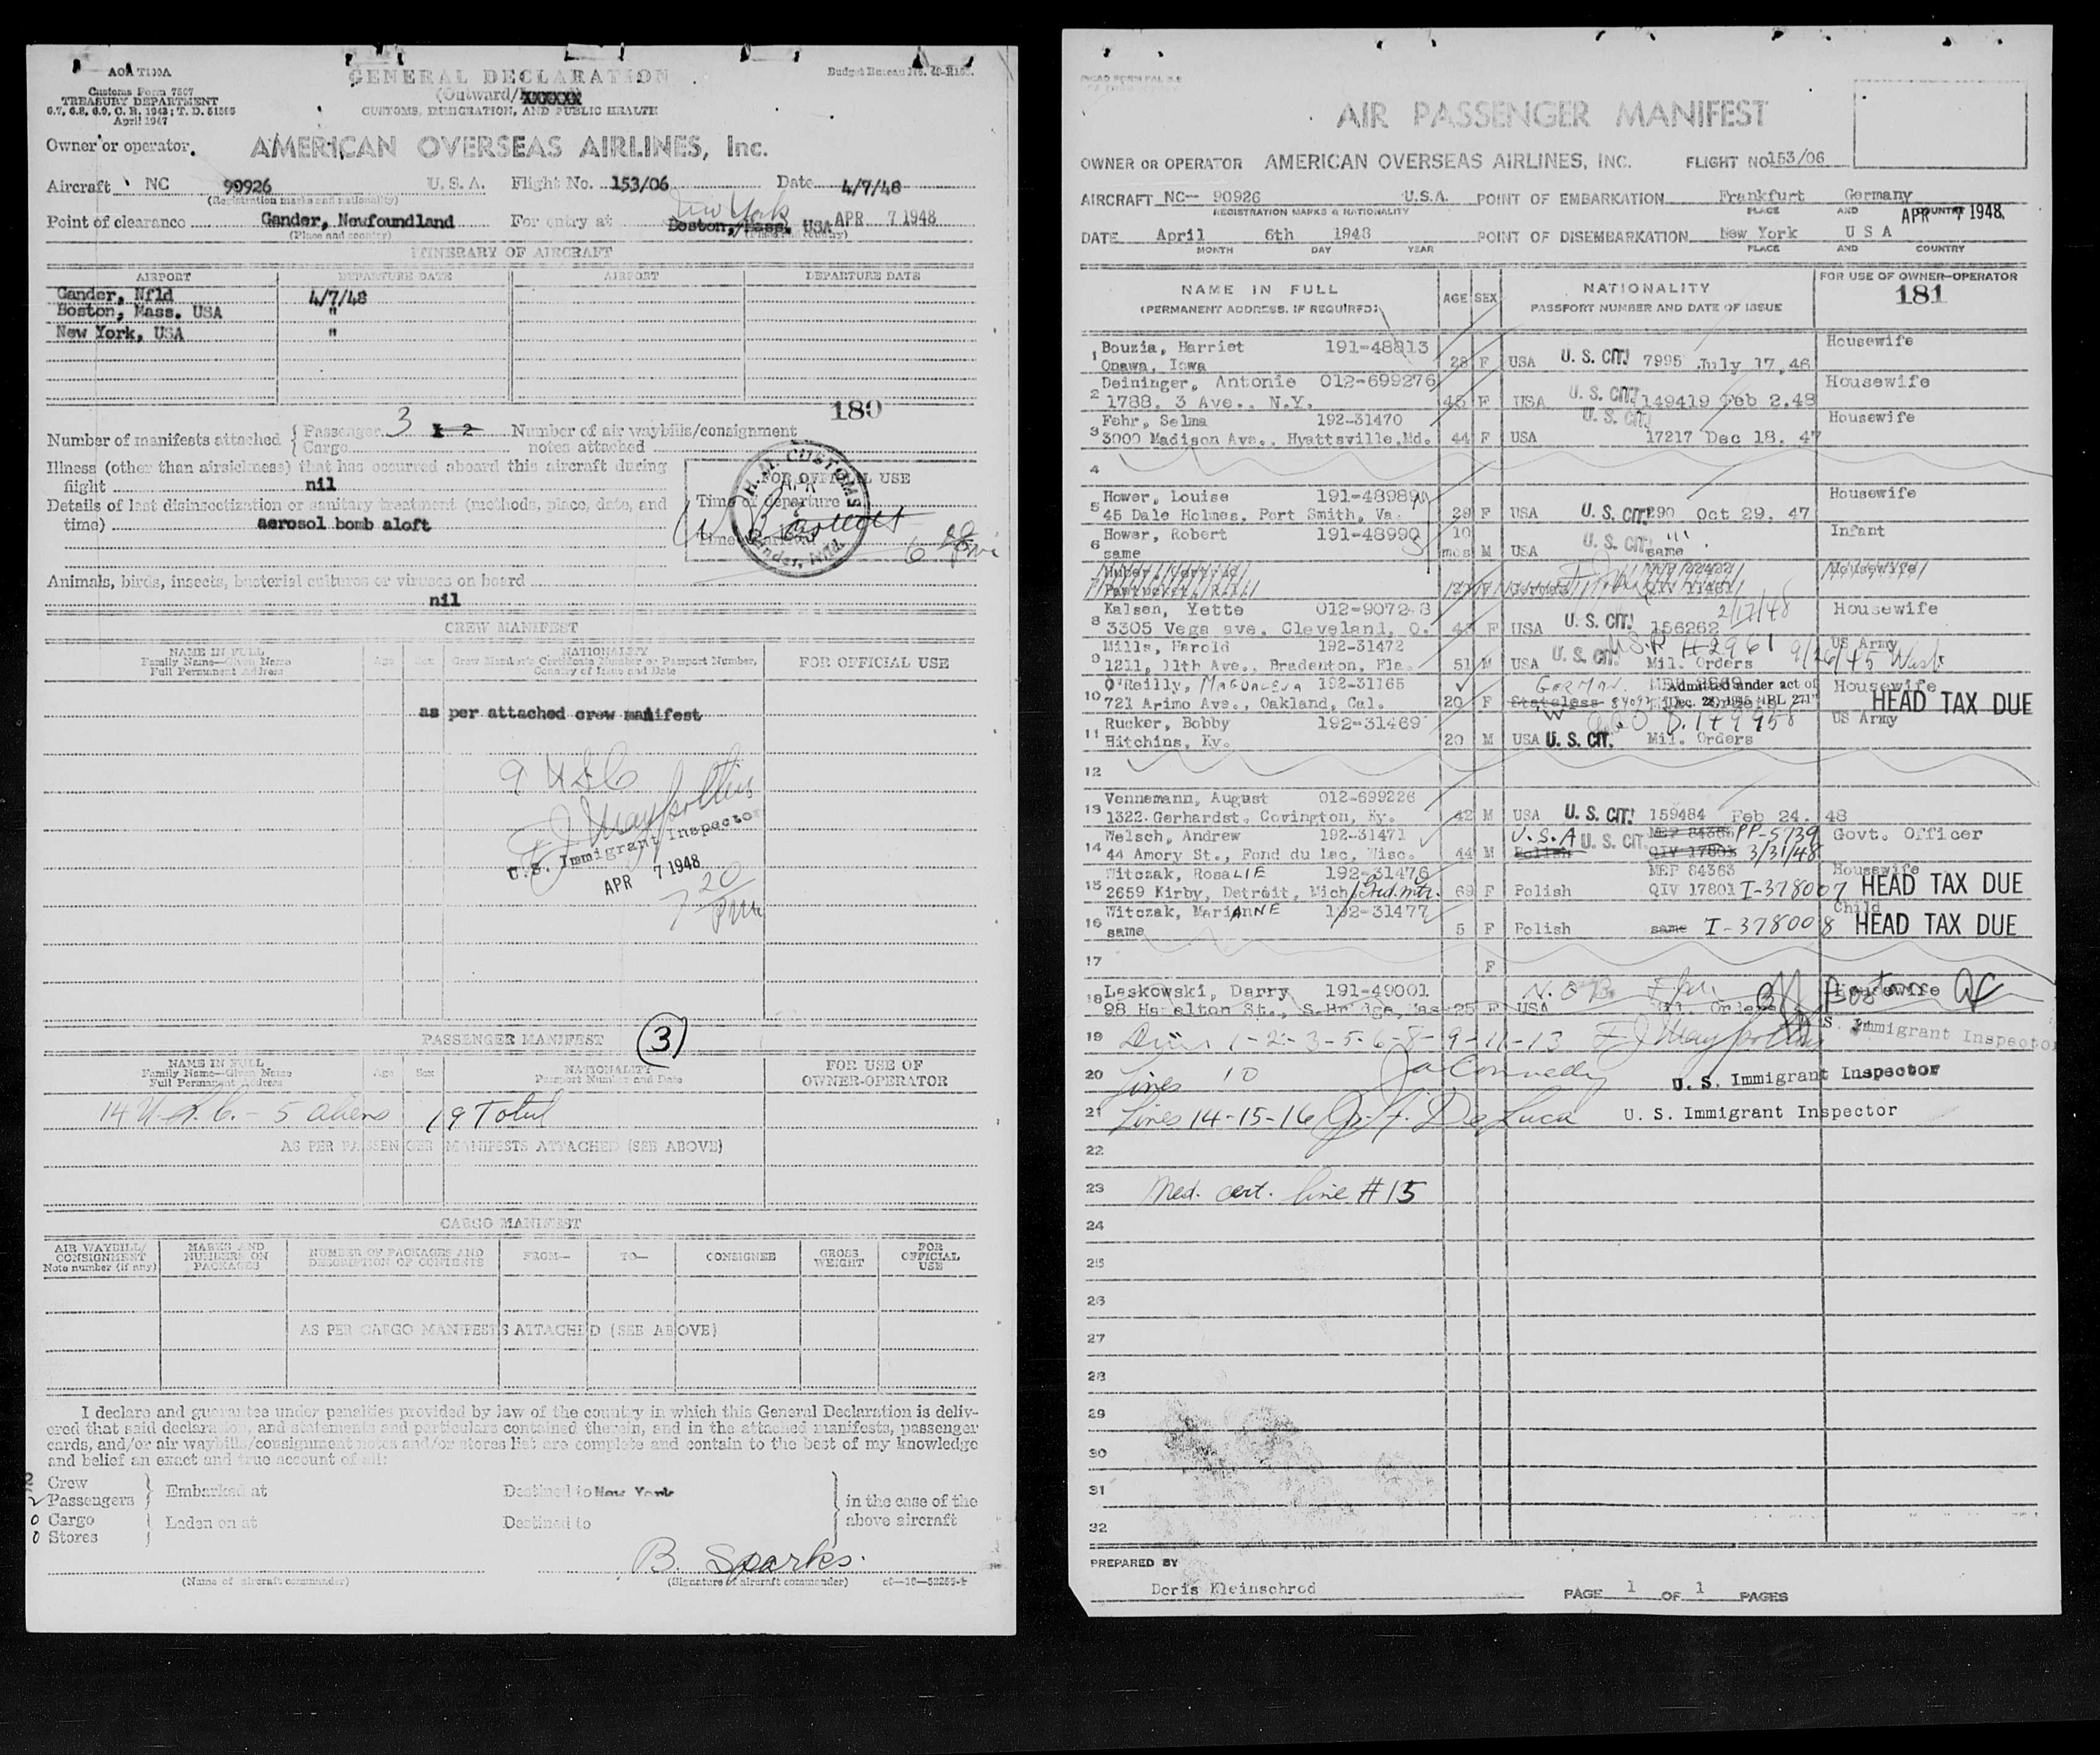 AOA T100A
Customs Form 7507
TREASURY DEPARTMENT
6.7, 6.8, 6.9, C. R. 1943; T. D. 51565
April 1947
GENERAL DECLARATION
(Outward/XXXXXX
CUSTOMS, IMMIGRATION, AND PUBLIC HEALTH
Budget Bureau No.
Owner or operator. AMERICAN OVERSEAS AIRLINES, Inc.
Aircraft NC 90926 U. S. A. Flight No. 153/06 Date 4/7/48
(Registration marks and nationality)
New York
Point of clearance Gander, Newfoundland For entry at Boston, Mass. USA APR 7 1948
(Place and country) (Place and country)
ITINERARY OF AIRCRAFT
AIRPORT DEPARTURE DATE AIRPORT DEPARTURE DATE
Gander, Nfld 4/7/48
Boston, Mass. USA "
New York, USA "
180
Number of manifests attached { Passenger 3 1-2 Number of air waybills/consignment
Cargo notes attached
Illness (other than airsickness) that has occurred aboard this aircraft during
flight nil
Details of last disinsectization or sanitary treatment (methods, place, date, and
time) aerosol bomb aloft
FOR OFFICIAL USE
Time of departure
H.M. CUSTOMS
Gander, Nfld.
Animals, birds, insects, bacterial cultures or viruses on board
nil
CREW MANIFEST
NAME IN FULL
Family Name—Given Name
Full Permanent Address
Age Sex
NATIONALITY
Crew Member's Certificate Number or Passport Number,
Country of Issue and Date
FOR OFFICIAL USE
as per attached crew manifest
9 USC
U. S. Immigrant Inspector
APR 7 1948
7 20 PM
PASSENGER MANIFEST 3
NAME IN FULL
Family Name—Given Name
Full Permanent Address
Age Sex
NATIONALITY
Passport Number and Date
FOR USE OF
OWNER-OPERATOR
14 U.S.C. - 5 aliens 19 Total
AS PER PASSENGER MANIFESTS ATTACHED (SEE ABOVE)
CARGO MANIFEST
AIR WAYBILL/
CONSIGNMENT
Note number (if any)
MARKS AND
NUMBERS ON
PACKAGES
NUMBER OF PACKAGES AND
DESCRIPTION OF CONTENTS
FROM— TO— CONSIGNEE
GROSS
WEIGHT
FOR
OFFICIAL
USE
AS PER CARGO MANIFESTS ATTACHED (SEE ABOVE)
I declare and guarantee under penalties provided by law of the country in which this General Declaration is deliv-
ered that said declaration, and statements and particulars contained therein, and in the attached manifests, passenger
cards, and/or air waybills/consignment notes and/or stores list are complete and contain to the best of my knowledge
and belief an exact and true account of all:
Crew
Passengers Embarked at Destined to New York in the case of the
0 Cargo Laden on at Destined to above aircraft
0 Stores
B. Sparks.
(Name of aircraft commander) (Signature of aircraft commander)
AIR PASSENGER MANIFEST
OWNER OR OPERATOR AMERICAN OVERSEAS AIRLINES, INC. FLIGHT NO 153/06
AIRCRAFT NC— 90926 U.S.A. POINT OF EMBARKATION Frankfurt Germany
REGISTRATION MARKS & NATIONALITY PLACE AND COUNTRY
APR 7 1948
DATE April 6th 1948 POINT OF DISEMBARKATION New York U S A
MONTH DAY YEAR PLACE AND COUNTRY
NAME IN FULL
(PERMANENT ADDRESS, IF REQUIRED)
AGE SEX
NATIONALITY
PASSPORT NUMBER AND DATE OF ISSUE
FOR USE OF OWNER-OPERATOR
181
1 Bouzia, Harriet 191-48813 Housewife
Onawa, Iowa 28 F USA U. S. CIT. 7995 July 17,46
2 Deininger, Antonie 012-699276 Housewife
1788, 3 Ave., N.Y. 45 F USA U. S. CIT. 149419 Feb 2.48
3 Fehr, Selma 192-31470 Housewife
3000 Madison Ave., Hyattsville,Md. 44 F USA U. S. CIT. 17217 Dec 18. 47
4
5 Hower, Louise 191-48989 Housewife
45 Dale Holmes, Port Smith, Va. 29 F USA U. S. CIT. 290 Oct 29. 47
6 Hower, Robert 191-48990 Infant
same 10 mos M USA U. S. CIT. same
8 Kalsen, Yette 012-9072 8 2/17/48 Housewife
3305 Vega ave, Cleveland, O. F USA U. S. CIT. 156262
9 Mills, Harold 192-31472 US Army
1211, 11th Ave., Bradenton, Fla. 51 M USA U. S. CIT. Mil. Orders 9/26/45 Wash
10 O'Reilly, MAGDALENA 192-31165 GERMAN Admitted under act of Housewife
721 Arimo Ave., Oakland, Cal. 20 F Stateless Dec. 28, 1945 (PL 271) HEAD TAX DUE
11 Rucker, Bobby 192-31469 US Army
Hitchins, Ky. 20 M USA U. S. CIT. Mil. Orders
12
13 Vennemann, August 012-699226
1322 Gerhardst, Covington, Ky. 42 M USA U. S. CIT. 159484 Feb 24. 48
14 Welsch, Andrew 192-31471 U.S.A U. S. CIT. MEP 84366 PP-5739 Govt. Officer
44 Amory St., Fond du Lac, Wisc. 44 M Polish QIV 17801 3/31/48
15 Witczak, RosaLIE 192-31476 MEP 84363 Housewife
2659 Kirby, Detroit, Mich Grd.mtr. 69 F Polish QIV 17801 I-378007 HEAD TAX DUE
16 Witczak, MariANNE 192-31477 Child
same 5 F Polish same I-378008 HEAD TAX DUE
17 F
18 Laskowski, Darry 191-49001 N.O.B. Housewife
98 Hamelton St., 25 F USA Mil. Orders
19 Lines 1-2-3-5-6-8-9-11-13 U. S. Immigrant Inspector
20 Lines 10 J A Connelly U. S. Immigrant Inspector
21 Lines 14-15-16 De Luca U. S. Immigrant Inspector
22
23 Med. cert. line #15
24
25
26
27
28
29
30
31
32
PREPARED BY
Doris Kleinschrod
PAGE 1 OF 1 PAGES